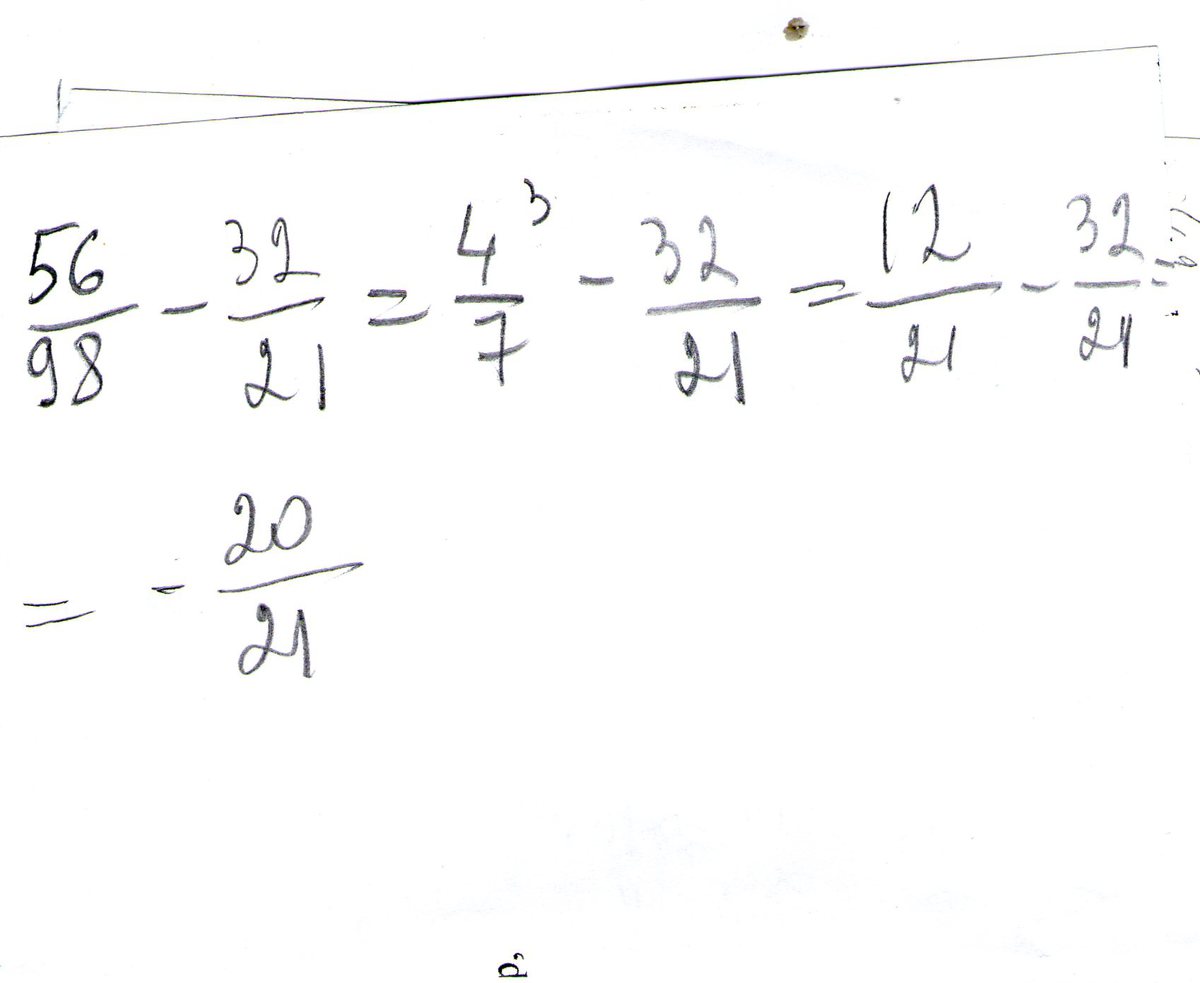 56/98 - 32/21 = 4³/7 - 32/21 = 12/21 - 32/21
= - 20/21
p,